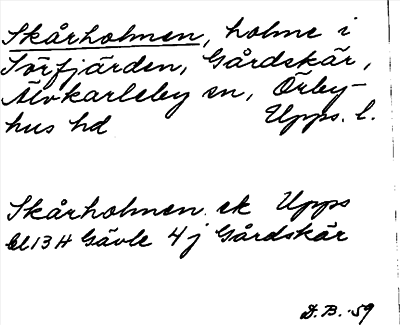 Skårholmen, holme i
Törfjärden, Gårdskär,
Älvkarleby sn, Örby-
hus hd Upps. l.
Skårholmen. ek Upps
bl 13 H Gävle 4 j Gårdskär
D. B. -59